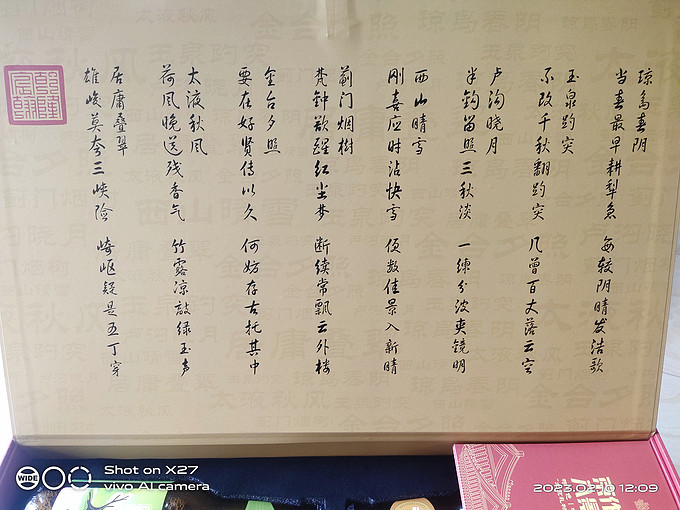 琼岛春阴
当春最早耕犁急 每较阴晴发浩歌
玉泉趵突
不改千秋翻趵突 几曾百丈落云空
卢沟晓月
半钩留照三秋淡 一练分波夹镜明
西山晴雪
刚喜应时沾快雪 便数佳景入新晴
蓟门烟树
梵钟欲醒红尘梦 断续常飘云外楼
金台夕照
要在好贤传以久 何妨存古托其中
太液秋风
荷风晚送残香气 竹露凉敲绿玉声
居庸叠翠
雄峻莫夸三峡险 崎岖疑是五丁穿
乾隆宸翰
WIDE
Shot on X27
vivo AI camera
2023.02.10 12:09